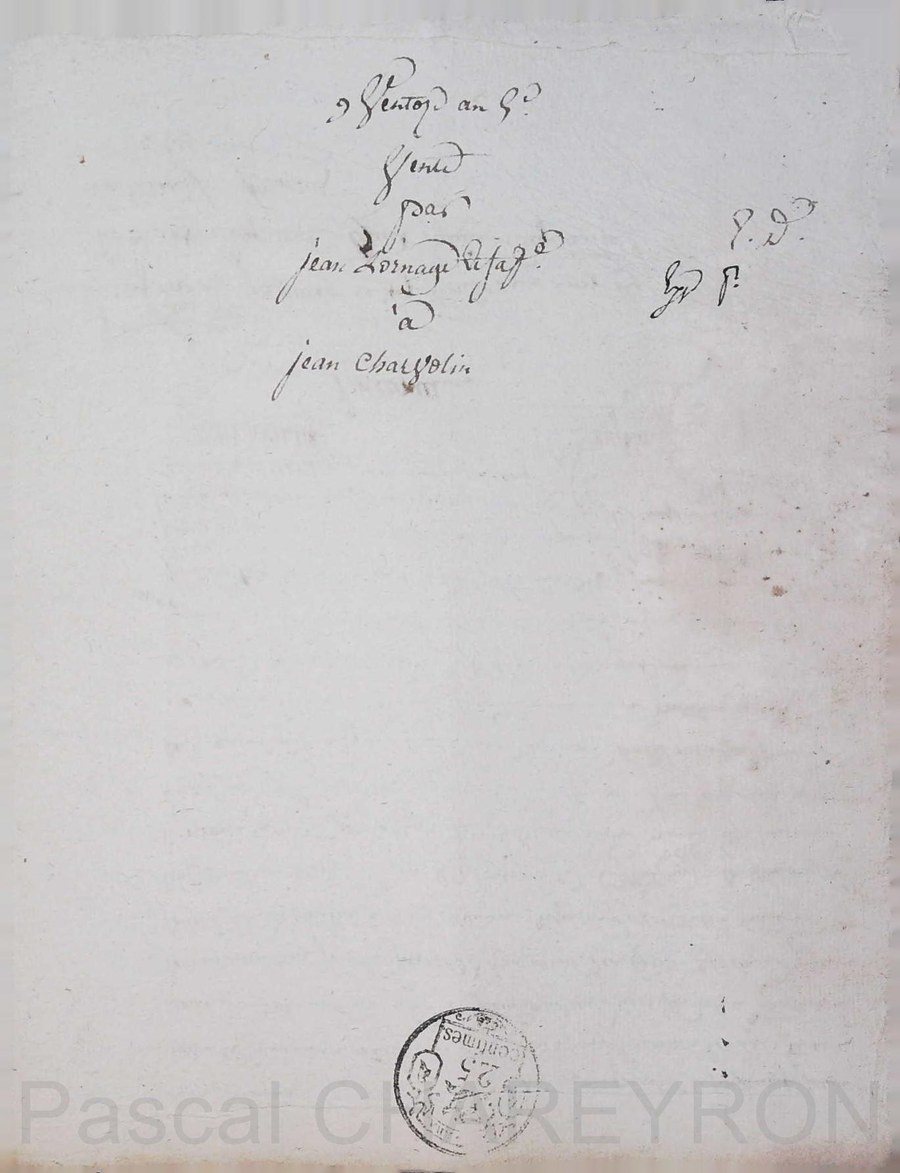 9 Ventose an
Vente
par
jean Lornage & sa f.e
à
jean Charvolin
25
centimes
Pascal CHAREYRON